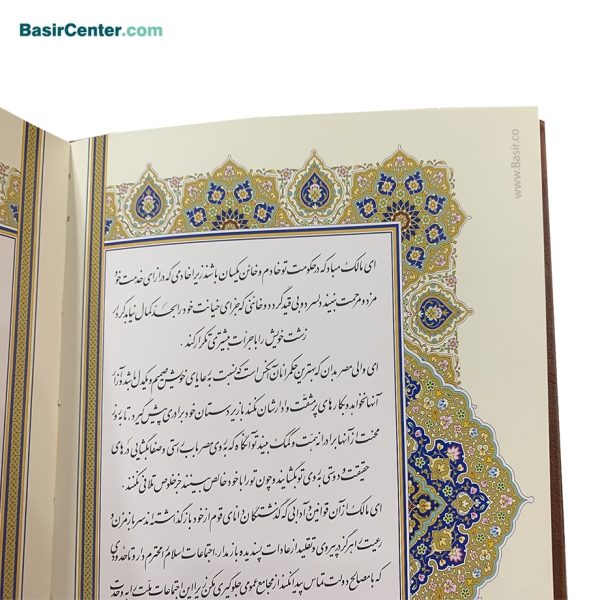 BasirCenter.com
www.Basir.co
ای مالک مباد که در حکومت تو خادم و خائن یکسان باشند زیرا خادمی که در ازای خدمت خود
مزد و مرحمت نبیند دلسرد و بی قید گردد و خائنی که جزای خیانت خود را بحد کمال نیابد کردار
زشت خویش را با جرأت بیشتری تکرار کند .
ای والی مصر بدان که بهترین حکمرانان آنکس است که نسبت به رعایای خویش صمیم و یکدل باشد و از
آنها نخواهد و بکارهای پر مشقت وادارشان نکند باز زیردستان خود برادری پیش گیرد، تا به روز
محنت از آنها برادرانه همت و کمک بیند تو آنگاه که به روی مصر باب راستی و صفا بگشایی درهای
حقیقت و دوستی به روی تو بگشایند و چون تو را با خود خالص ببینند جز خلوص تلافی نکنند .
ای مالک از آن قوانین و آدابی که گذشتگان و دانای قوم از خود باز گذاشته اند سر باز مزن و
رعیت را هرگز در پیروی و تقلید از عادات پسندیده باز مدار، اجتماعات اسلام را محترم دار و تا حدودی
که با مصالح دولت تماس پیدا نکند از مجامع عمومی جلوگیری مکن زیرا این اجتماعات ملت را به وحدت